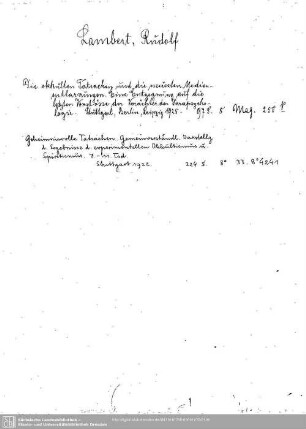 Lambert, Rudolf
Die okkulten Tatsachen und die neuesten Medien-
entlarvungen. Eine Entgegnung auf die
letzten Vorstösse der Verächter der Parapsycho-
logie. Stuttgart, Berlin, Leipzig 1925. 8° Mag. 255
Geheimnisvolle Tatsachen. Gemeinverständl. Darstellg
d. Ergebnisse d. experimentellen Okkultismus u.
Spiritismus. Tsd.
Stuttgart 1921. 224 S. 8° 33. 8° 4241